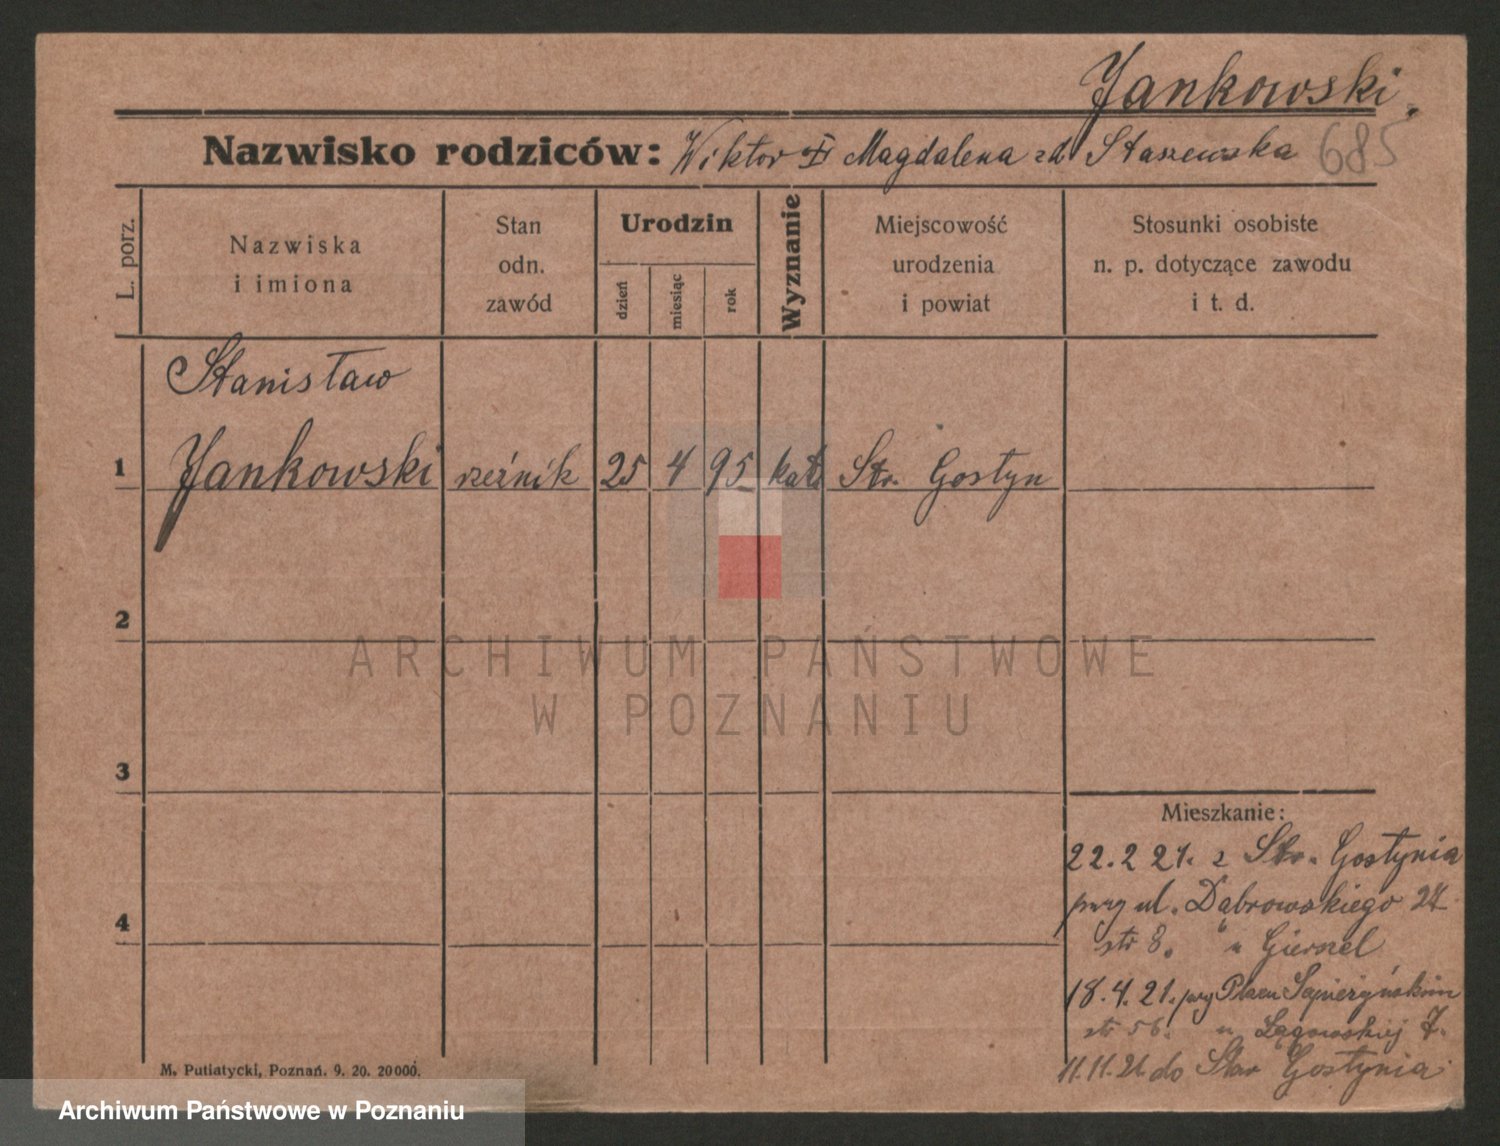 Jankowski.
Nazwisko rodziców: Wiktor Magdalena zd Staszewska 685
L. porz.
Nazwiska
i imiona
Stan
odn.
zawód
Urodzin
dzień
miesiąc
rok
Wyznanie
Miejscowość
urodzenia
i powiat
Stosunki osobiste
n. p. dotyczące zawodu
i t. d.
Stanisław
1 Jankowski rzeźnik 25 4 95 kat. Str. Gostyn
2
3
4
Mieszkanie:
22.2 21. z Str. Gostynia
przy ul. Dąbrowskiego
str 8. u Gierszel
18.4.21. przy Placu Sapieżyńskim
str 5b. u Łągowskiej 7.
11.11.21. do Star Gostynia
M. Putiatycki, Poznań. 9. 20. 20000.
ARCHIWUM PAŃSTWOWE
W POZNANIU
Archiwum Państwowe w Poznaniu